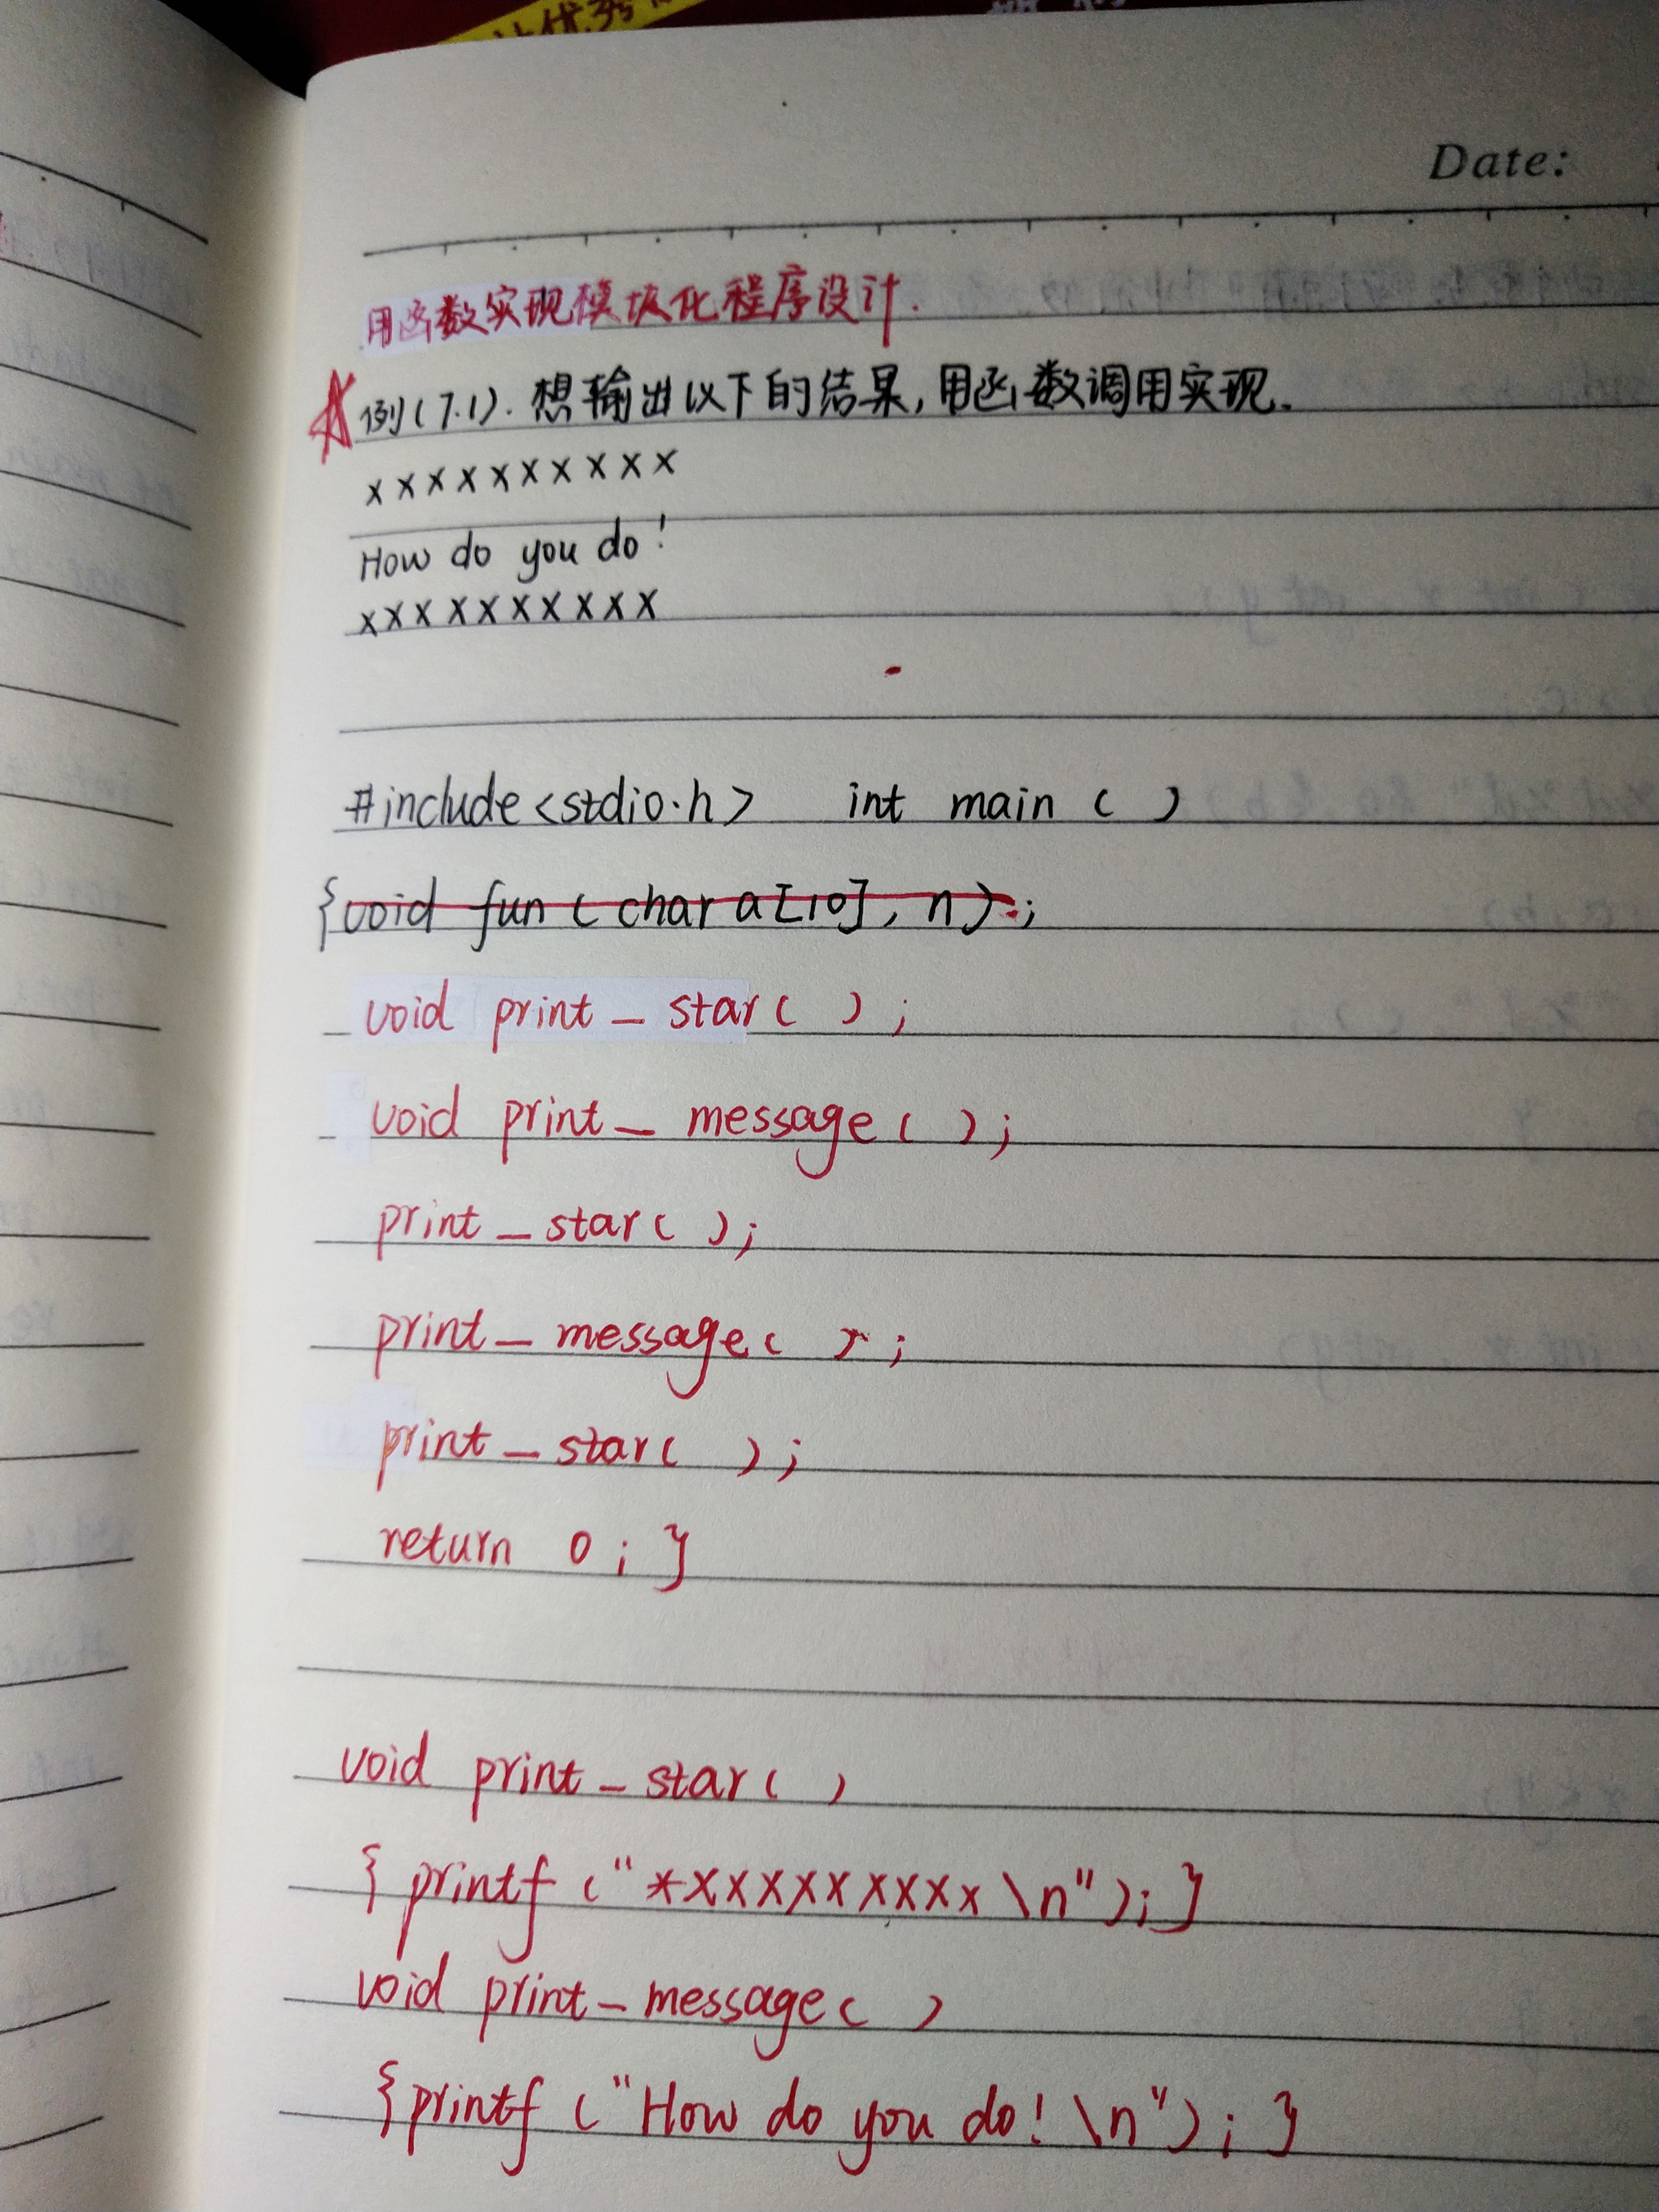 Date:
用函数实现模块化程序设计.
例(7.1). 想输出以下的结果,用函数调用实现.
xxxxxxxxxx
How do you do!
xxxxxxxxxx
#include<stdio.h> int main ( )
{void fun ( char a[10], n );
void print_star( );
void print_message( );
print_star( );
print_message( );
print_star( );
return 0; }
void print_star( )
{ printf ("*xxxxxxxxx\n"); }
void print_message( )
{printf ("How do you do! \n"); }